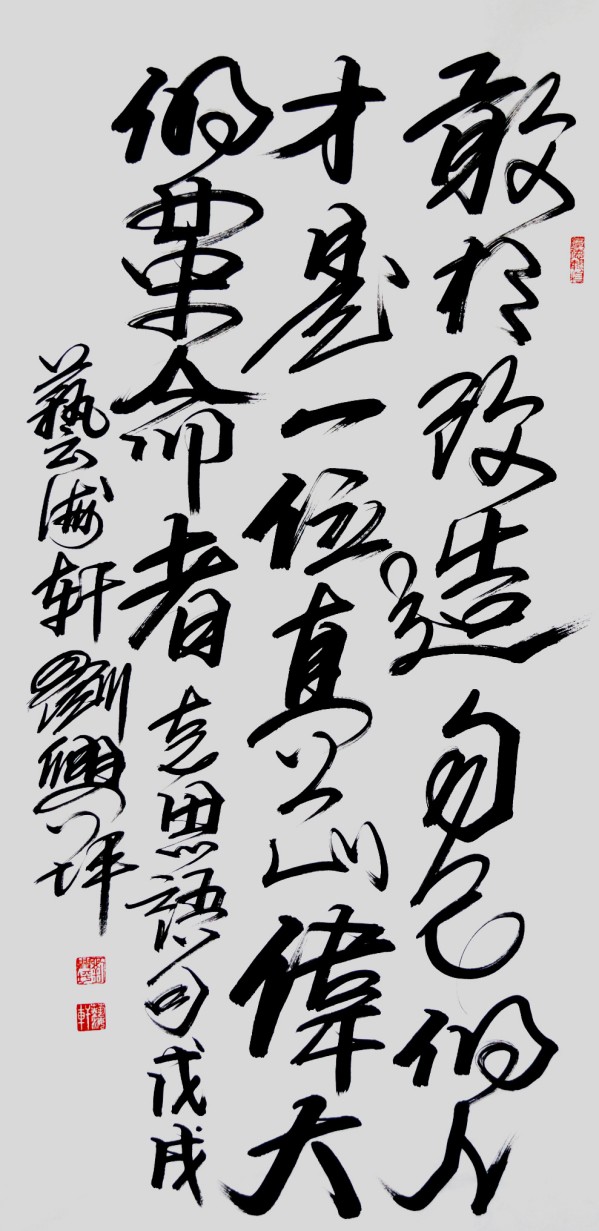 敢於改造自己的人
才是一位真正偉大
的革命者 思語句戊戌
藝海軒劉興坪